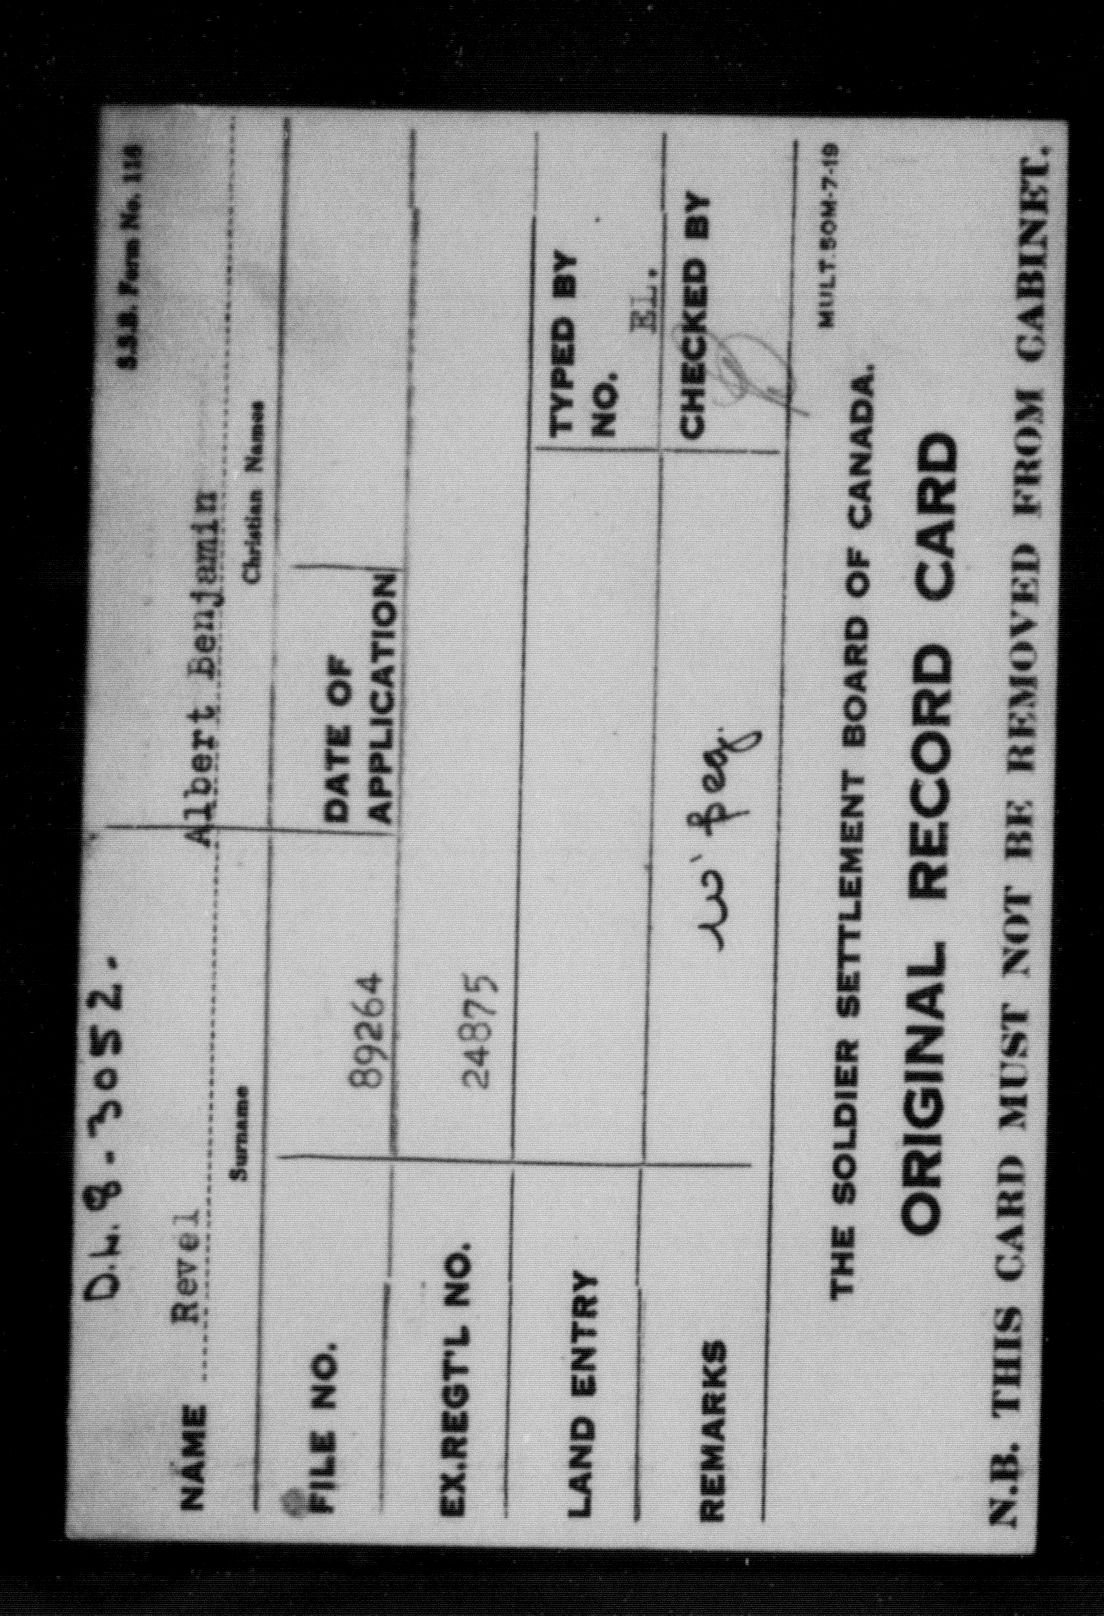 D.L. 8-3052.
S.S.B. Form No. 116
NAME Revel Albert Benjamin
Surname Christian Names
FILE NO. 89264 DATE OF APPLICATION
EX.REGT'L NO. 24875
LAND ENTRY TYPED BY NO. EL.
REMARKS w'peg. CHECKED BY
MULT.50M-7-19
THE SOLDIER SETTLEMENT BOARD OF CANADA.
ORIGINAL RECORD CARD
N.B. THIS CARD MUST NOT BE REMOVED FROM CABINET.